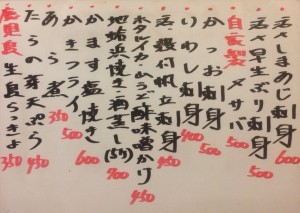 活〆しまあじ刺身 600
活〆早生ぶり刺身 500
自家製〆サバ 500
かつお刺身 500
いわし刺身 400
活〆殻付帆立刺身 450
ホタルイカとうど酢味噌かけ 450
地蛤浜焼き/酒蒸し(5ケ) 700
かます塩焼き 600
かきフライ 500
あら煮 350
たらの芽天ぷら 450
鹿児島生島らっきょ 350